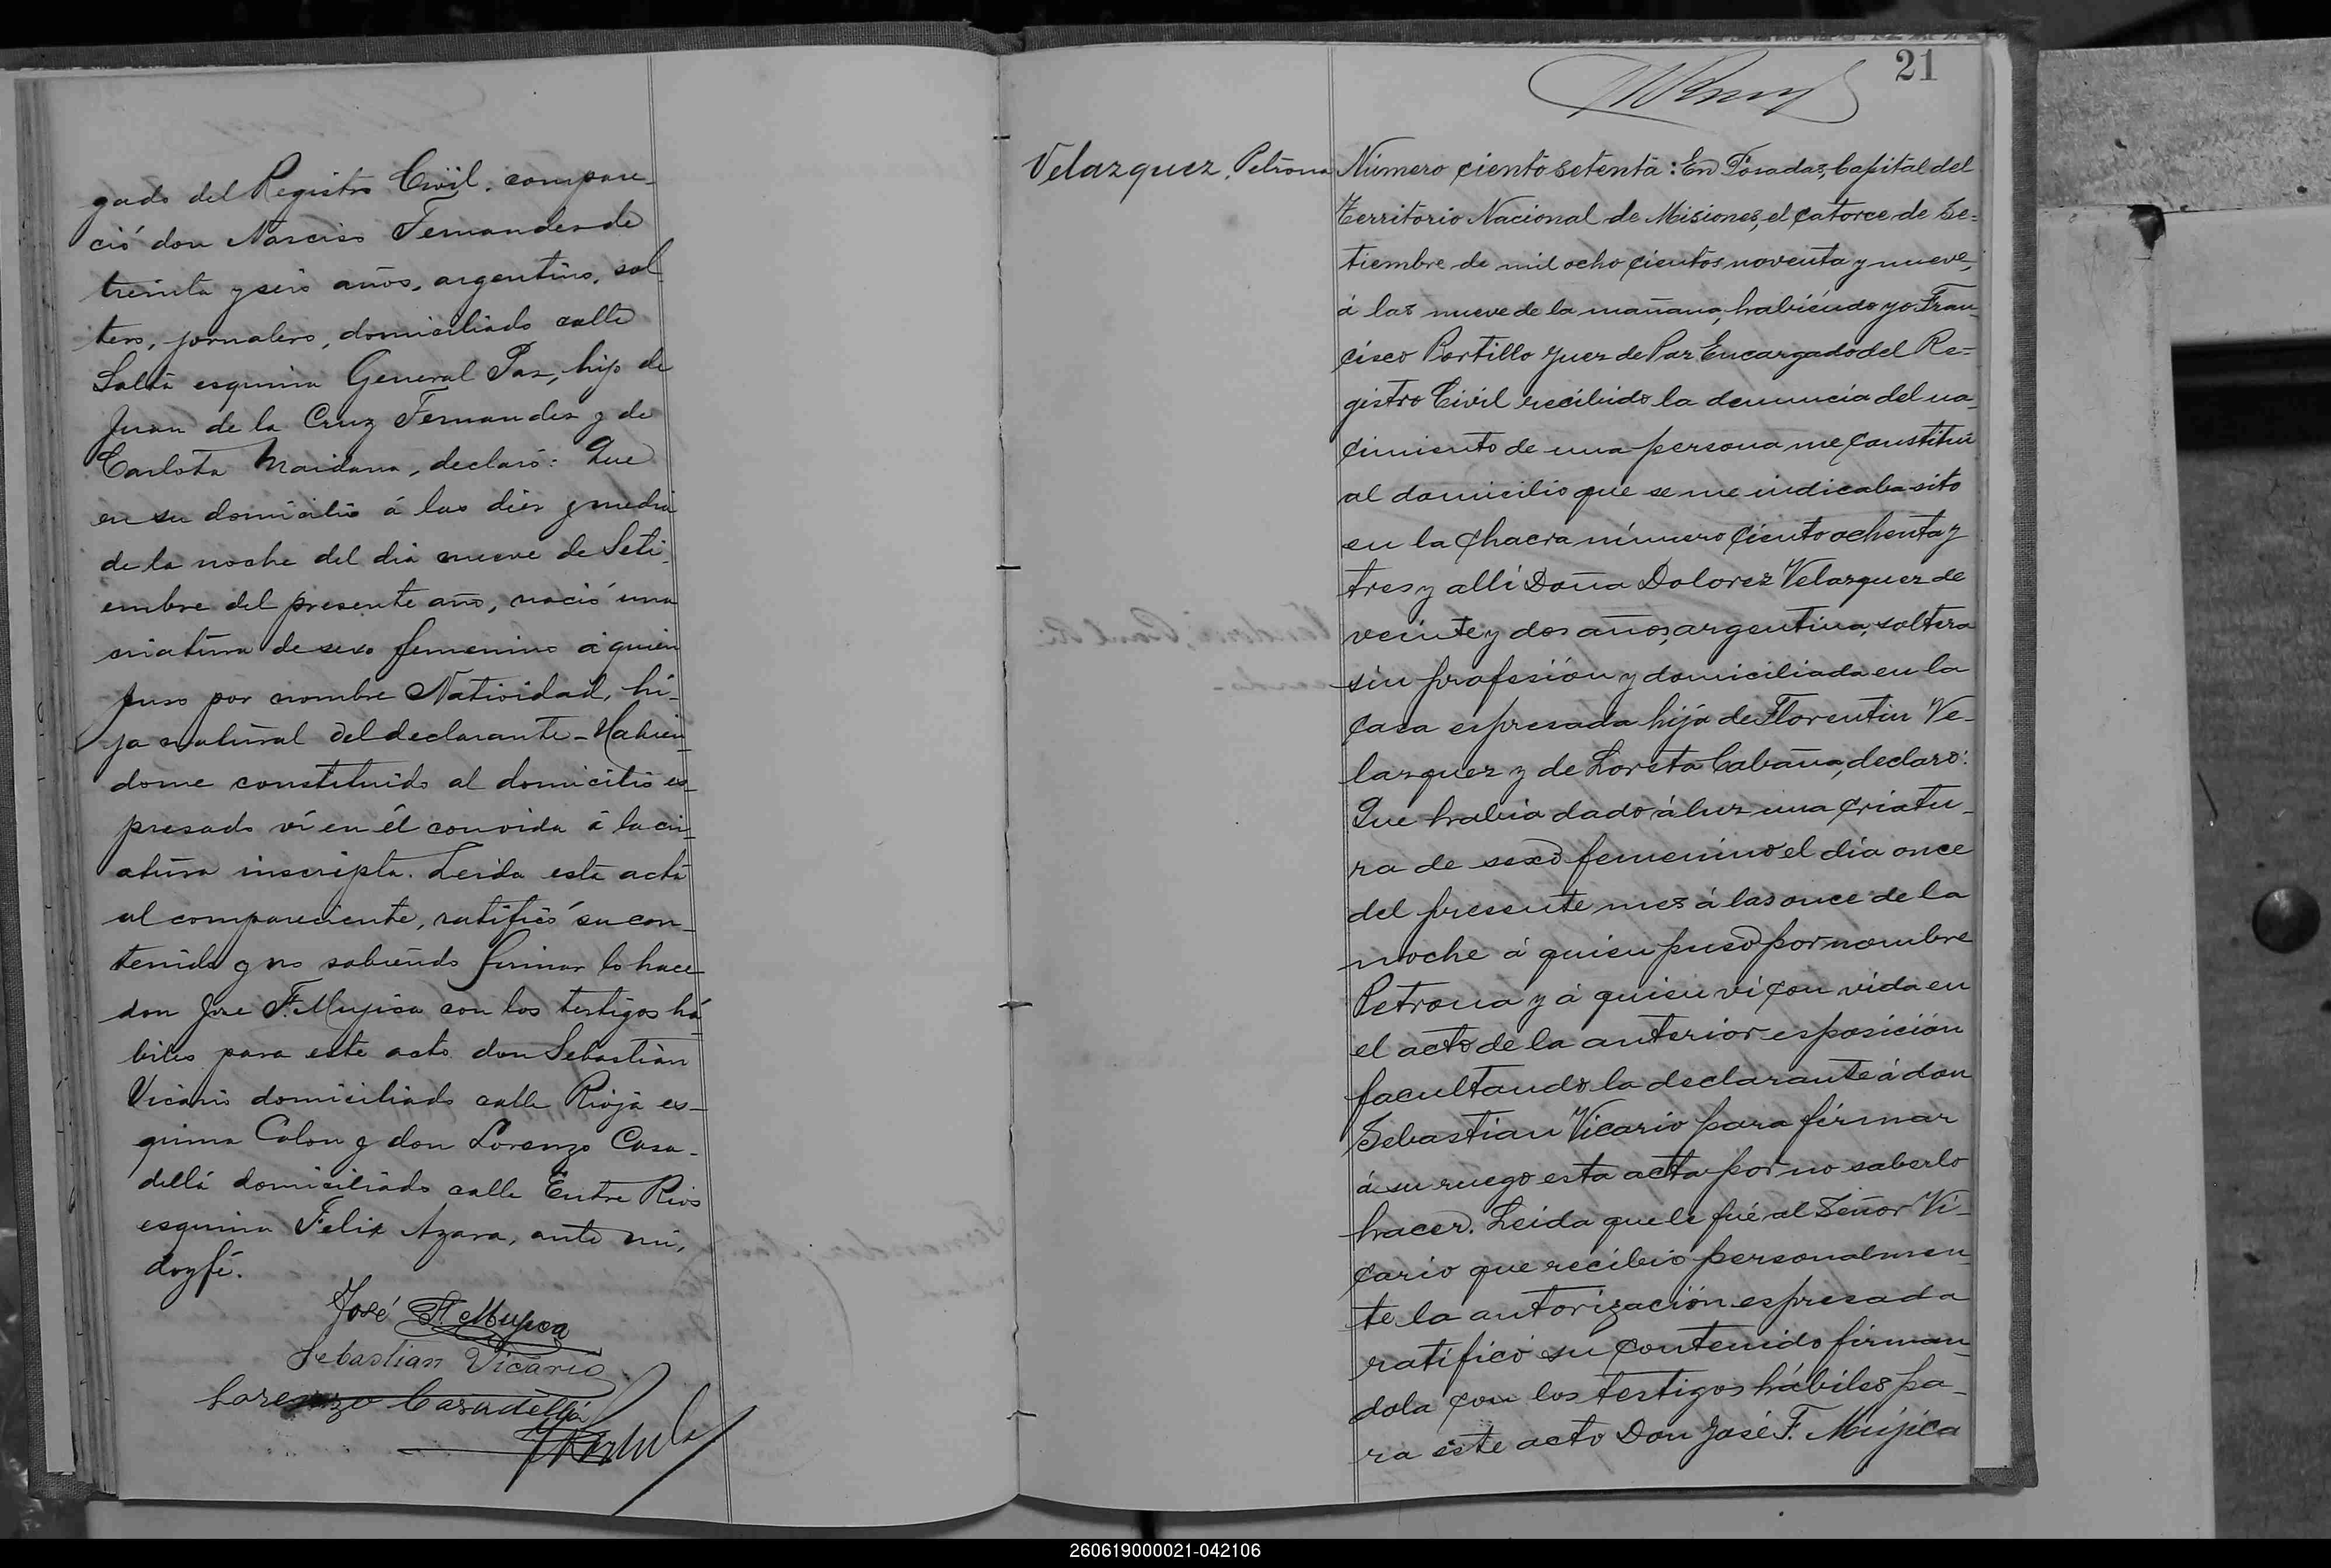 gado del Registro Civil, compare-
ció don Narciso Fernandez de
treinta y seis años, argentino, sol-
tero, jornalero, domiciliado calle
Salta esquina General Paz, hijo de
Juan de la Cruz Fernandez y de
Carlota Maidana, declaró: Que
en su domicilio á las diez y media
de la noche del dia nueve de Seti-
embre del presente año, nació una
criatura de sexo femenino á quien
puso por nombre Natividad, hi-
ja natural del declarante - Habien-
dome constituido al domicilio es-
presado ví en él con vida á la cri-
atura inscripta. Leida esta acta
al compareciente, ratificó su con-
tenido y no sabiendo firmar lo hace
don José F. Mujica con los testigos há-
biles para este acto don Sebastián
Vicario domiciliado calle Rioja es-
quina Colon y don Lorenzo Casa-
dellá domiciliado calle Entre Rios
esquina Felix Azara, ante mí,
doy fé.
José F. Mujica
Sebastian Vicario
Lorenzo Casadellá
21
Velazquez, Petrona
Número ciento setenta: En Posadas, Capital del
Territorio Nacional de Misiones, el catorce de Se=
tiembre de mil ocho cientos noventa y nueve,
á las nueve de la mañana, habiéndo yo Fran-
cisco Portillo Juez de Paz Encargado del Re=
gistro Civil recibido la denuncia del na-
cimiento de una persona me constituí
al domicilio que se me indicaba sito
en la chacra número ciento ochenta y
tres y allí Doña Dolorez Velazquez de
veinte y dos años, argentina, soltera
sin profesión y domiciliada en la
casa espresada hija de Florentin Ve-
lazquez y de Loreta Cabaña, declaró:
Que habia dado á luz una criatu-
ra de sexo femenino el día once
del presente mes á las once de la
noche á quien puso por nombre
Petrona y á quien ví con vida en
el acto de la anterior esposición
facultando la declarante á don
Sebastian Vicario para firmar
á su ruego esta acta por no saberlo
hacer. Leida que le fué al Señor Vi-
cario que recibió personalmen-
te la autorización espresada
ratificó su contenido firman-
dola con los testigos hábiles pa-
ra este acto Don José F. Mújica
260619000021-042106